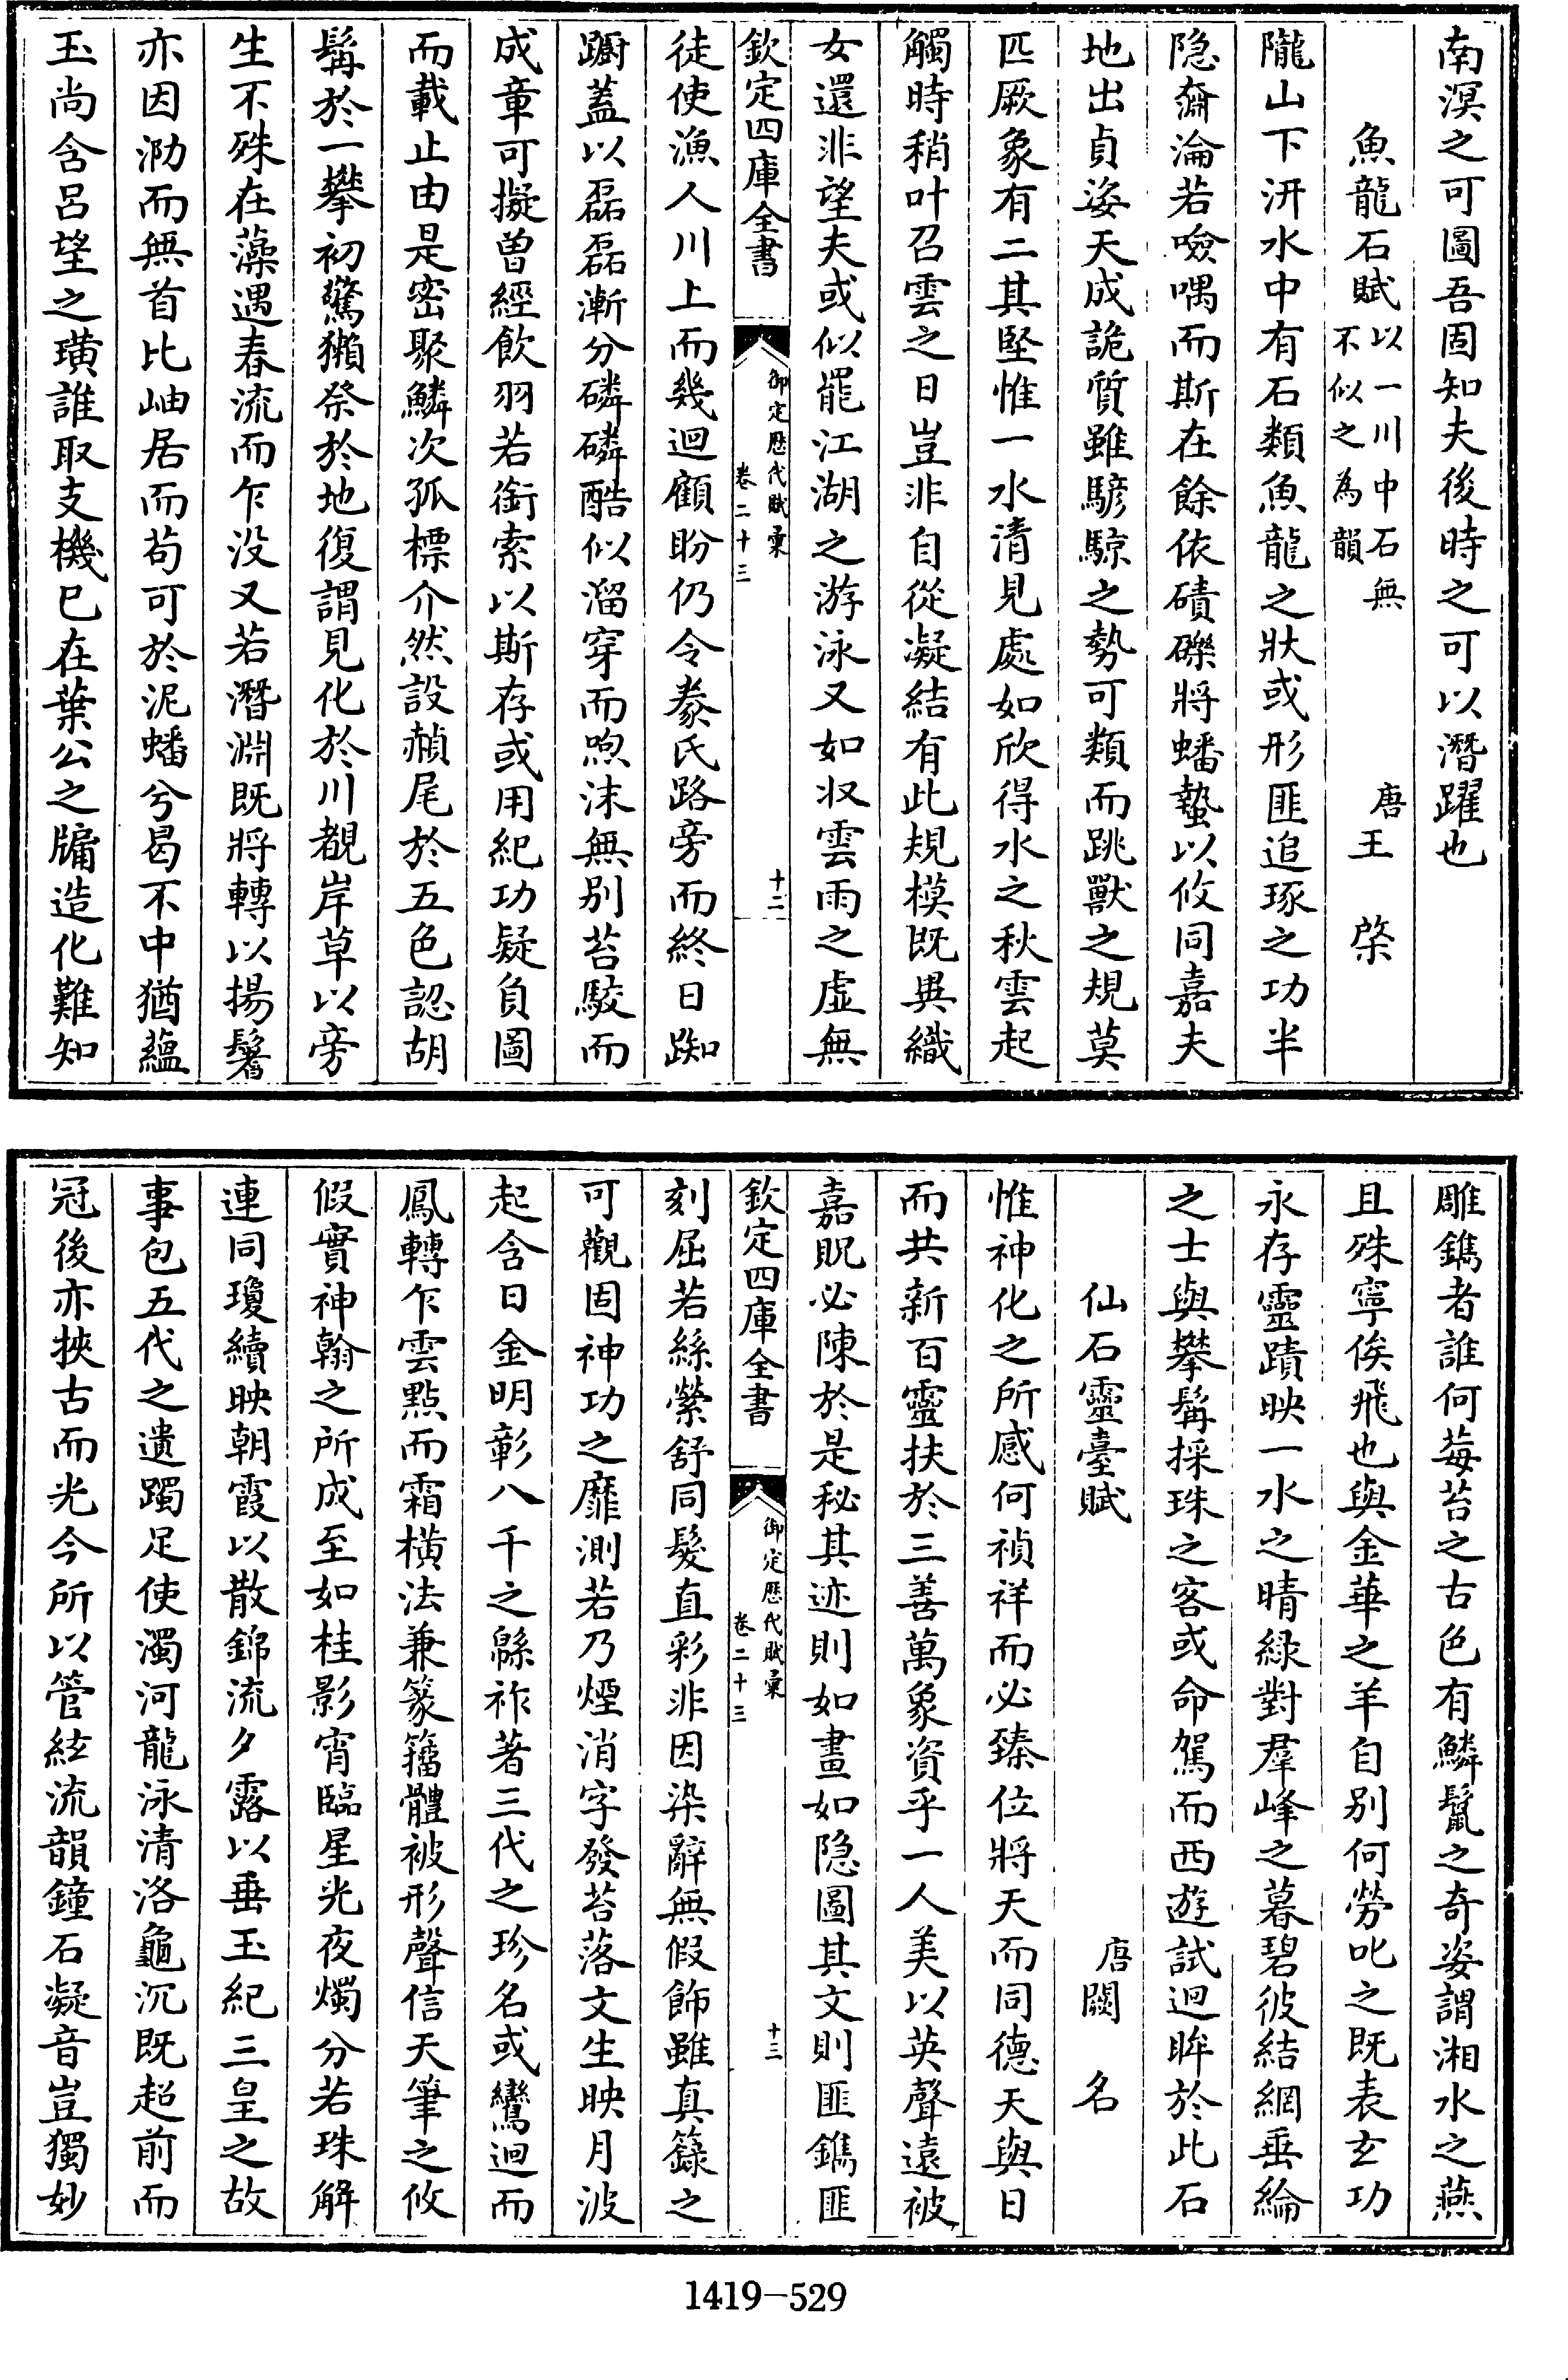 南溟之可圖吾固知夫後時之可以潛躍也
魚龍石賦以一川中石無不似之為韻 唐王棨
隴山下汧水中有石類魚龍之狀或形匪追琢之功半
隐奫淪若噞喁而斯在餘依磧礫將蟠蟄以攸同嘉夫
地出貞姿天成詭質雖騐䮽之勢可類而跳獸之規莫
匹厥象有二其堅惟一水清見處如欣得水之秋雲起
觸時稍叶召雲之日豈非自從凝結有此規模既異織
女還非望夫或似罷江湖之游泳又如收雲雨之虛無
欽定四庫全書 御定歷代賦彙 卷二十三 十二
徒使漁人川上而幾迴顧盼仍令豢氏路旁而終日踟
蹰蓋以磊磊漸分磷磷酷似溜穿而喣沫無别苔駮而
成章可擬曽經飲羽若銜索以斯存或用紀功疑負圖
而載止由是密聚鱗次孤標介然設頳尾於五色認胡
髯於一攀初驚獺祭於地復謂見化於川覩岸草以旁
生不殊在藻遇春流而乍没又若潛淵既將轉以揚鬐
亦因泐而無首比岫居而茍可於泥蟠兮曷不中猶蘊
玉尚含呂望之璜誰取支機已在葉公之牖造化難知
雕鐫者誰何莓苔之古色有鱗鬛之奇姿謂湘水之燕
且殊寧俟飛也與金華之羊自别何勞叱之既表玄功
永存靈蹟映一水之晴緑對羣峰之暮碧彼結網垂綸
之士與攀髯採珠之客或命駕而西遊試迴眸於此石
仙石靈臺賦 唐闕名
惟神化之所感何禎祥而必臻位將天而同德天與日
而共新百靈扶於三善萬象資乎一人美以英聲遠被
嘉貺必陳於是秘其迹則如畫如隐圖其文則匪鐫匪
欽定四庫全書 御定歷代賦彙 卷二十三 十三
刻屈若絲縈舒同髮直彩非因染辭無假飾雖真籙之
可觀固神功之靡測若乃煙消字發苔落文生映月波
起含日金明彰八千之緜祚著三代之珍名或鸞迴而
鳳轉乍雲點而霜橫法兼篆籀體被形聲信天筆之攸
假實神翰之所成至如桂影宵臨星光夜燭分若珠解
連同瓊續映朝霞以散錦流夕露以垂玉紀三皇之故
事包五代之遺躅足使濁河龍泳清洛龜沉既超前而
冠後亦挾古而光今所以管絃流韻鐘石凝音豈獨妙
1419-529